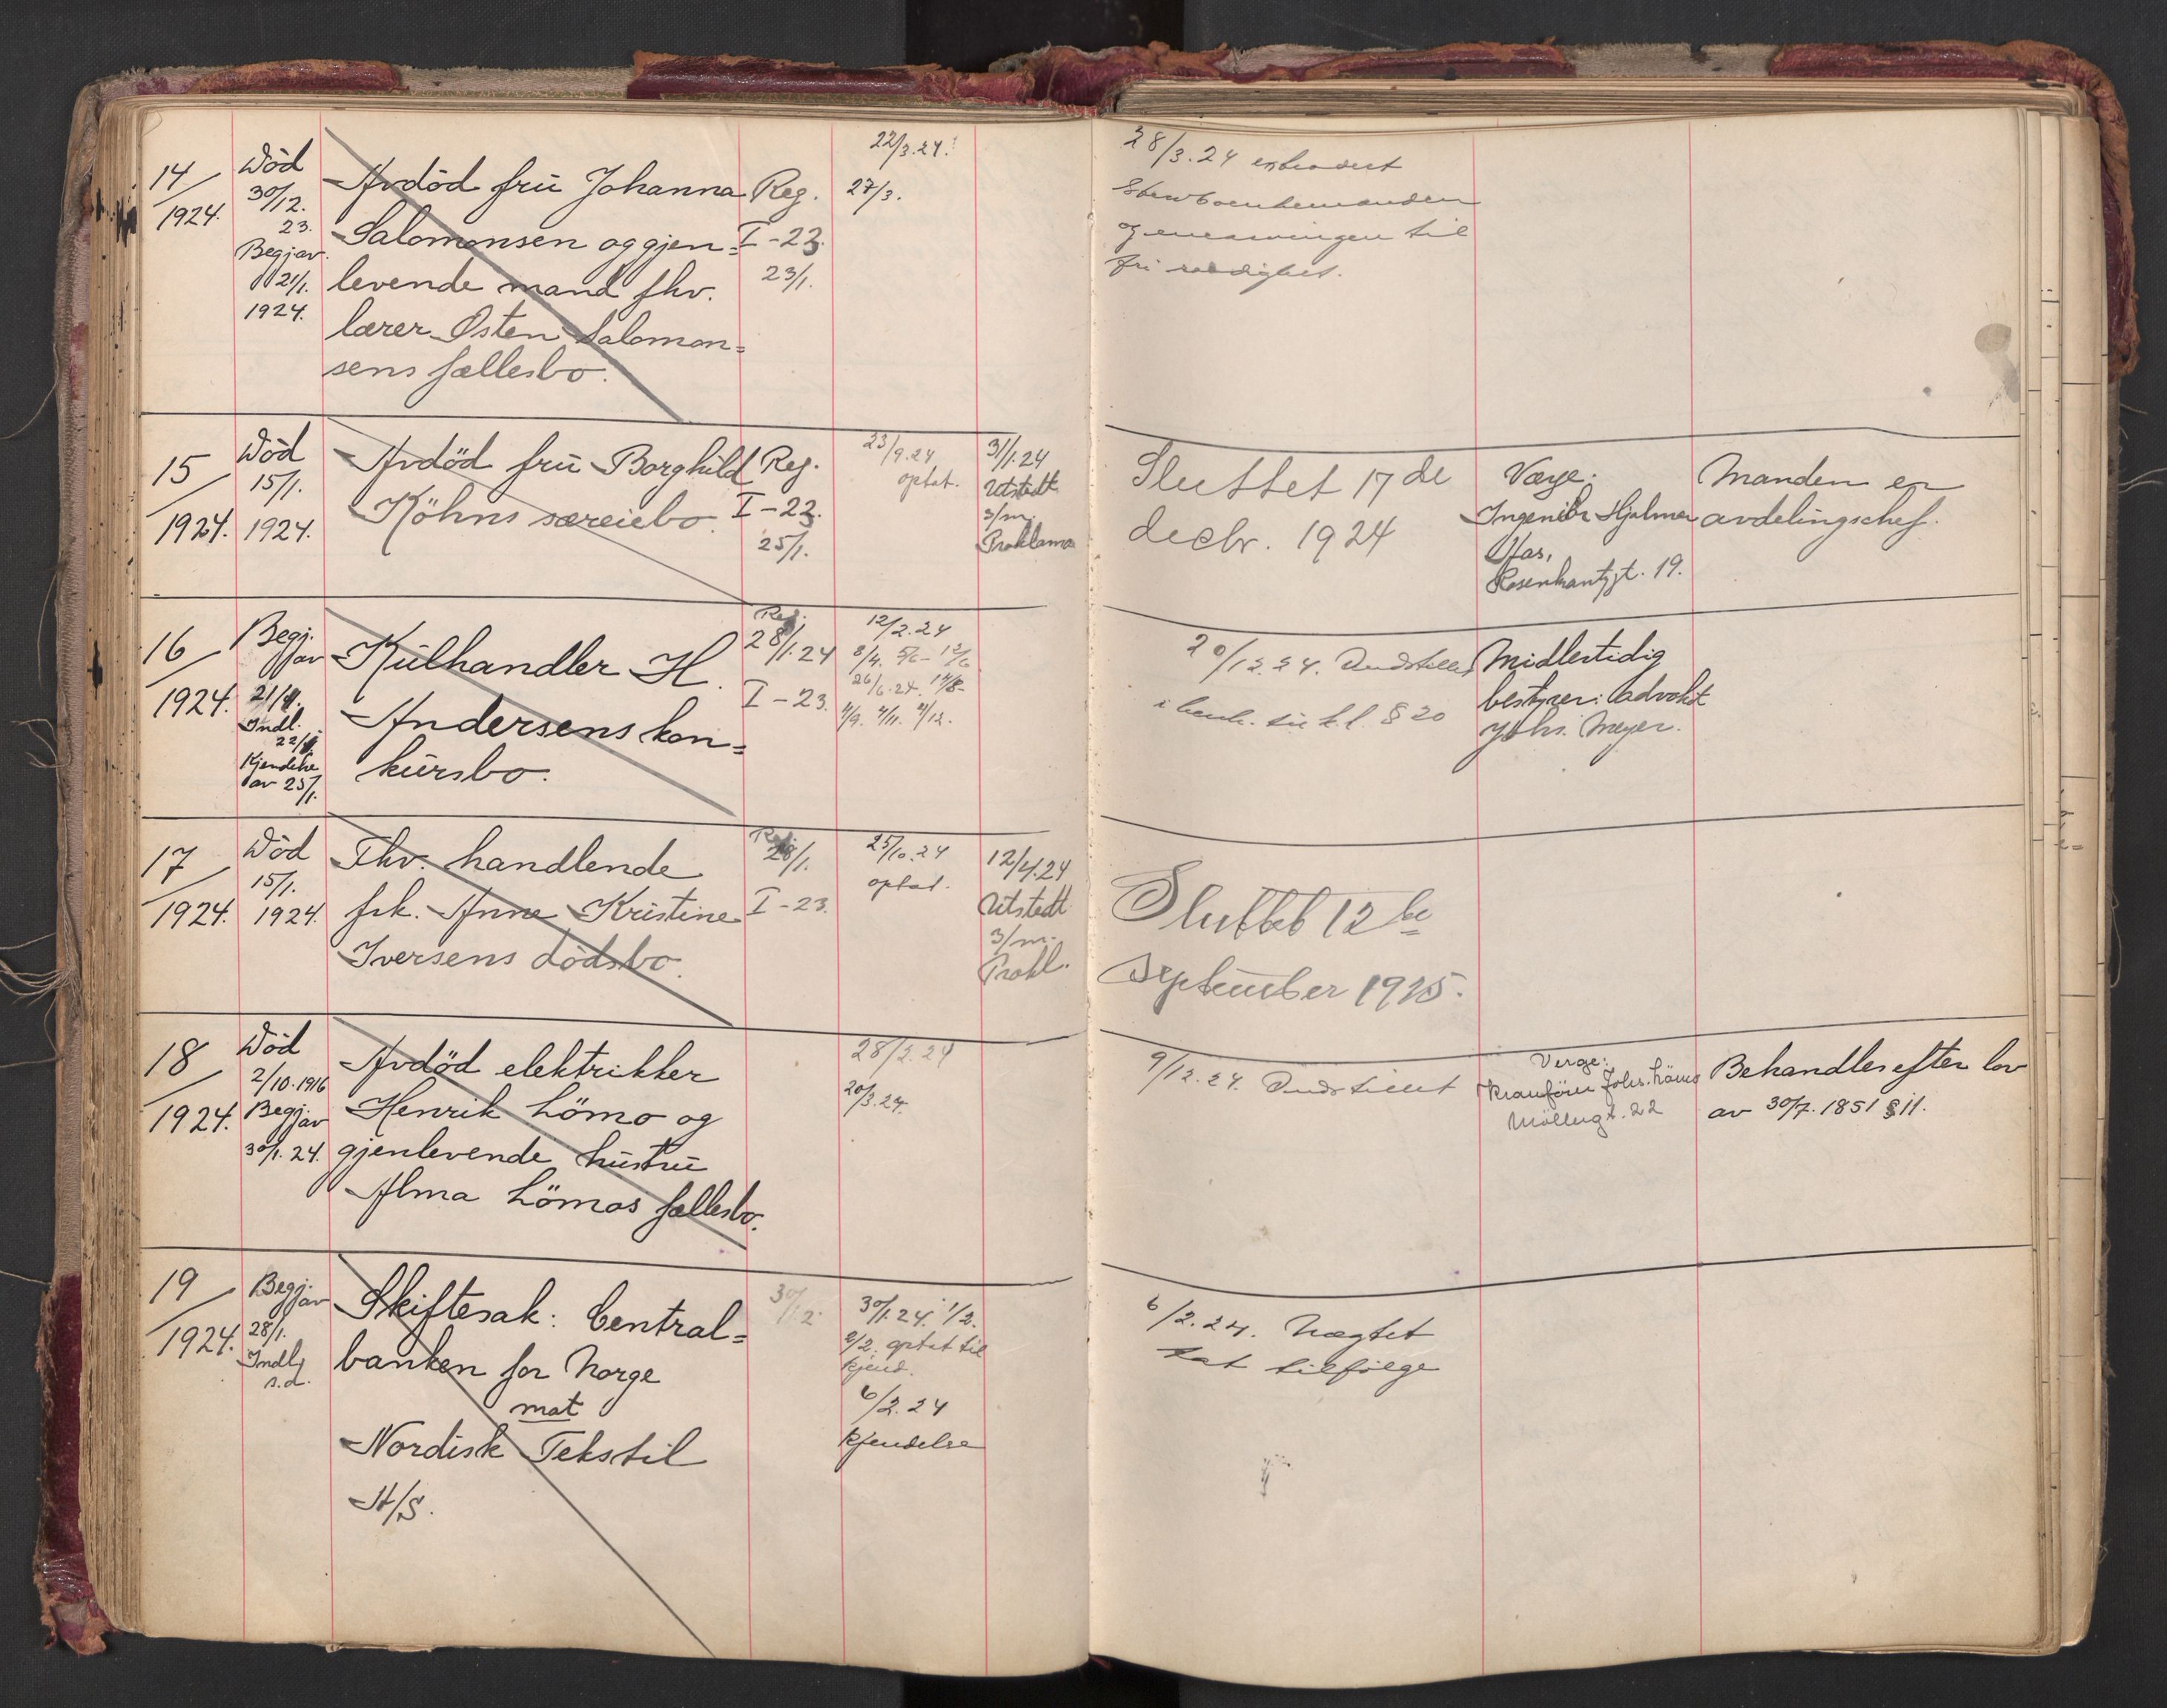 14
1924.
Död
30/12.
23.
Begj.av
21/1.
1924.
Avdöd frü Johanna
Salomonsen og gjen=
levende mand fhv.
lærer Østen Salomon=
sens fællesbo.
Reg.
I-23.
23/1.
22/3.24.
27/3.
28/3.24
og
til
fri raadighet.
15
1924.
Död
15/1.
1924.
Avdöd frü Borghild
Köhns særeiebo.
Reg.
I-23.
25/1.
23/9.24
optat.
31/1.24
Utstedt
3/m.
Proklama
Sluttet 17 de
decbr. 1924
Værge:
Ingeniör Hjalmar
Aas,
Rosenkrantzgt. 19.
Manden er
avdelingschef.
16
1924.
Begj.
av
21/1.
Indl.
22/1.
Kjendelse
av 25/1.
Külhandler H.
Andersens kon=
kürsbo.
Reg.
28/1.24
I-23.
12/2.24
8/4. 5/6- 12/6
26/6.24. 14/8-
4/9. 4/11. 4/12.
20/12.24. Indstillet
i henh. til k.l. § 20
Midlertidig
bestyrer: advokt
Johs. Meyer.
17
1924.
Död
15/1.
1924.
Fhv. handlende
frk. Anne Kristine
Iversens dödsbo.
Reg.
28/1.
I-23.
25/10.24
optat.
12/4.24
Utstedt
3/m.
Prokl.
Sluttet 12 te
September 1925.
18
1924.
Död
2/10.1916
Begj.
av
30/1.24.
Avdöd elektrikker
Henrik Lömo og
gjenlevende hüstrü
Alma Lömos fællesbo.
28/2.24
20/3.24.
9/12.24. Indstillet
Verge:
Kranförer Johs. Lömo
Möllergt. 22
Behandles efter lov
av 30/7.1851 § 11.
19
1924.
Begj.
av
28/1.
Indl.
s.d.
Skiftesak: Central=
banken for Norge
mot
Nordisk Tekstil
A/S.
30/1.24. 1/2.
2/2. optat til
kjend.
6/2.24
Kjendelse
6/2.24. Nægtet
tat tilfølge